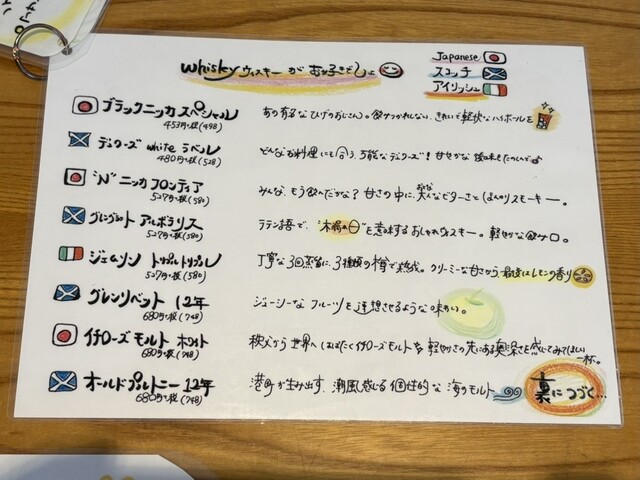 whisky ウィスキーが お好きでしょ
Japanese
スコッチ
アイリッシュ
ブラックニッカ スペシャル
453円+税(498)
あの有名なひげのおじさん。飲みつかれしない、きれいで軽快なハイボールを
デュワーズ white ラベル
480円+税(528)
どんなお料理にも合う、万能なデュワーズ!
"N" ニッカ フロンティア
527円+税(580)
みんな、もう飲んだかな? 甘さの中に、大人なビターさとほんのりスモーキー。
おとな
グレングラント アルボラリス
527円+税(580)
ラテン語で、"木漏れ日"を意味するおしゃれウィスキー。軽やかな飲み口。
ジェムソン トリプルトリプル
527円+税(580)
丁寧な3回蒸留に、3種類の樽で熟成。クリーミーな甘さから、最後はレモンの香り
グレンリベット 12年
680円+税(748)
ジューシーなフルーツを連想させるような味わい。
イチローズ モルト ホワイト
680円+税(748)
秩父から世界へはばたくイチローズモルトを 軽やかさの先にある奥深さを感じてみてほしい
一杯。
オールドプルトニー 12年
680円+税(748)
港町が生み出す、潮風感じる個性的な 海のモルト
裏につづく…